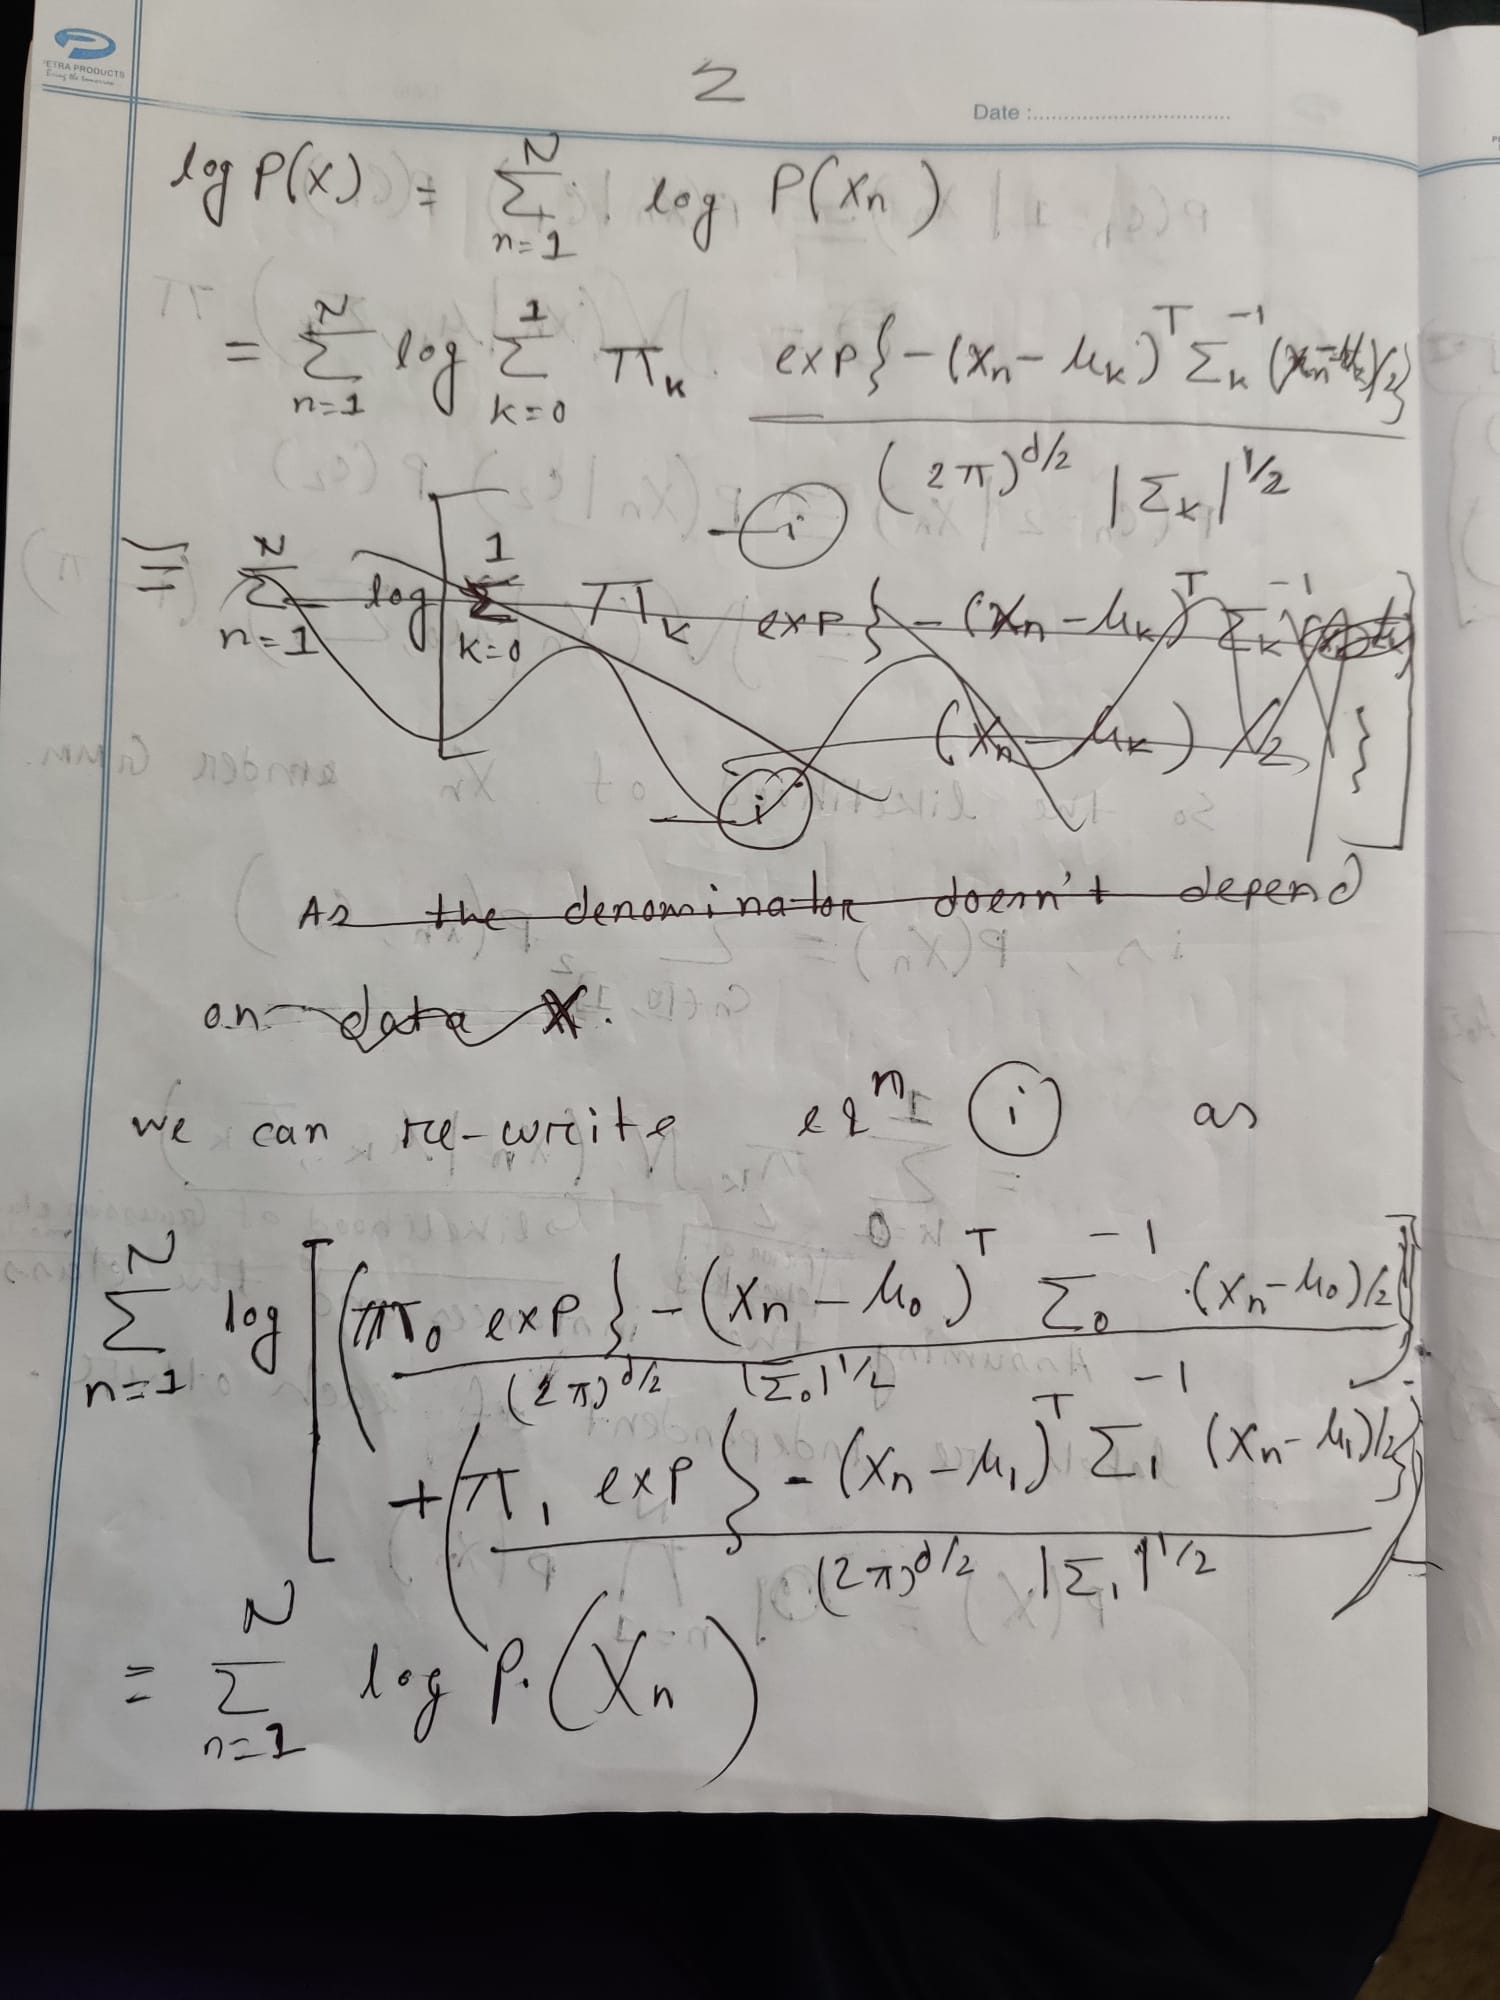 PETRA PRODUCTS
Bring the tomorrow
2
Date :
log P(X) = Σ_{n=1}^{N} log P(Xn)
= Σ_{n=1}^{N} log Σ_{k=0}^{1} πk . exp{-(Xn-μk)^T Σk^{-1} (Xn-μk)/2} / (2π)^{d/2} |Σk|^{1/2}
— (i)
≡ Σ_{n=1}^{N} log [ Σ_{k=0}^{1} πk exp{-(Xn-μk)^T Σk^{-1}
(Xn-μk)/2 } ]
— (i)
As the denominator doesn't depend
on data X.
we can re-write eq^n (i) as
Σ_{n=1}^{N} log [ (π0 exp{-(Xn-μ0)^T Σ0^{-1} .(Xn-μ0)/2} / (2π)^{d/2} |Σ0|^{1/2} )
+ (π1 exp{-(Xn-μ1)^T Σ1^{-1} (Xn-μ1)/2} / (2π)^{d/2} |Σ1|^{1/2} ) ]
= Σ_{n=1}^{N} log P.(Xn)